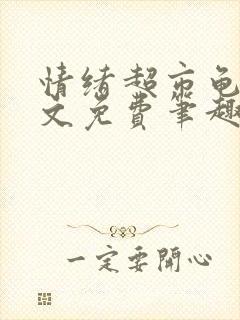 情绪超市龟
文免费笔趣
一定要開心